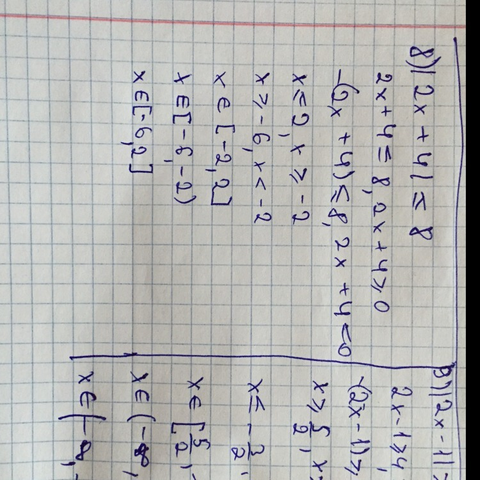 8) |2x + 4| ≤ 8
2x + 4 ≤ 8, 2x + 4 ≥ 0
-(2x + 4) ≤ 8, 2x + 4 = 0
x ≤ 2, x ≥ -2
x ≥ -6, x < -2
x ∈ [-2, 2]
x ∈ [-6, -2)
x ∈ [-6, 2]
|2x - 1| >
2x - 1 ≥ 4,
-(2x - 1) ≥
x ≥ 5/2, x ≥
x ≤ -3/2,
x ∈ [5/2,
x ∈ (-∞,
x ∈ (-∞,